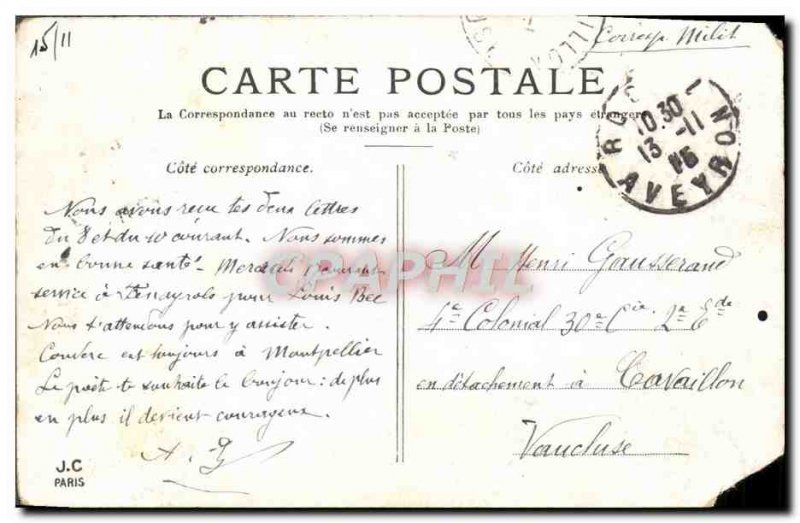 15/11
Corresp Milit
CARTE POSTALE
La Correspondance au recto n'est pas acceptée par tous les pays étrangers
(Se renseigner à la Poste)
Côté correspondance.
Côté adresse
10.30
13 -11
AVEYRON
Nous avons reçu tes deux lettres
du 8 et du 10 courant. Nous sommes
en bonne santé. Mercredi
service à Tenayrols pour Louis Bec
Nous t'attendons pour y assister.
est toujours à Montpellier
Le poète te souhaite le bonjour : de plus
en plus il devient courageux.
M Henri Gausserand
4e Colonial 30e Cie 2a
en détachement à Cavaillon
Vaucluse
CPAPHIL
J.C
PARIS